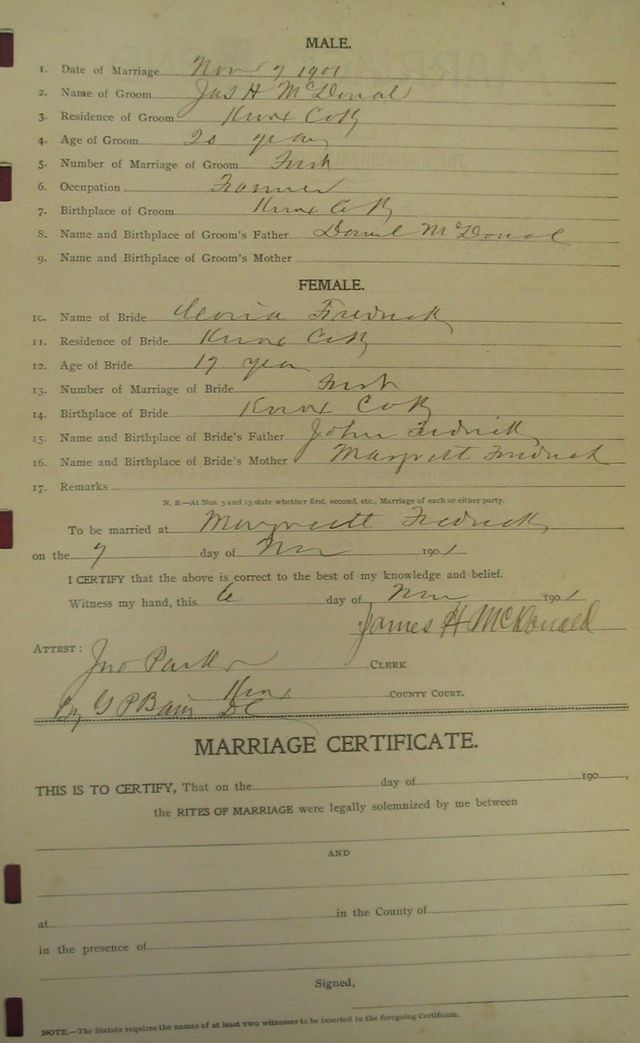 MALE.
1. Date of Marriage Nov 7 1901
2. Name of Groom Jas H McDonal
3. Residence of Groom Knox Co Ky
4. Age of Groom 20 years
5. Number of Marriage of Groom First
6. Occupation Farmer
7. Birthplace of Groom Knox Co Ky
8. Name and Birthplace of Groom's Father Daniel McDonal
9. Name and Birthplace of Groom's Mother
FEMALE.
10. Name of Bride Fredrick
11. Residence of Bride Knox Co Ky
12. Age of Bride years
13. Number of Marriage of Bride First
14. Birthplace of Bride Knox Co Ky
15. Name and Birthplace of Bride's Father John Fredrick
16. Name and Birthplace of Bride's Mother Margrett Fredrick
17. Remarks
N. B.—At Nos. 5 and 13 state whether first, second, etc., Marriage of each or either party.
To be married at Margrett Fredrick
on the 7 day of Nov 1901
I CERTIFY that the above is correct to the best of my knowledge and belief.
Witness my hand, this 6 day of Nov 1901
James H McDonald
ATTEST: Jno Parker CLERK
Knox COUNTY COURT.
By G P Bain DC
MARRIAGE CERTIFICATE.
THIS IS TO CERTIFY, That on the day of 190
the RITES OF MARRIAGE were legally solemnized by me between
AND
at in the County of
in the presence of
Signed,
NOTE.—The Statute requires the names of at least TWO witnesses to be inserted in the foregoing Certificate.